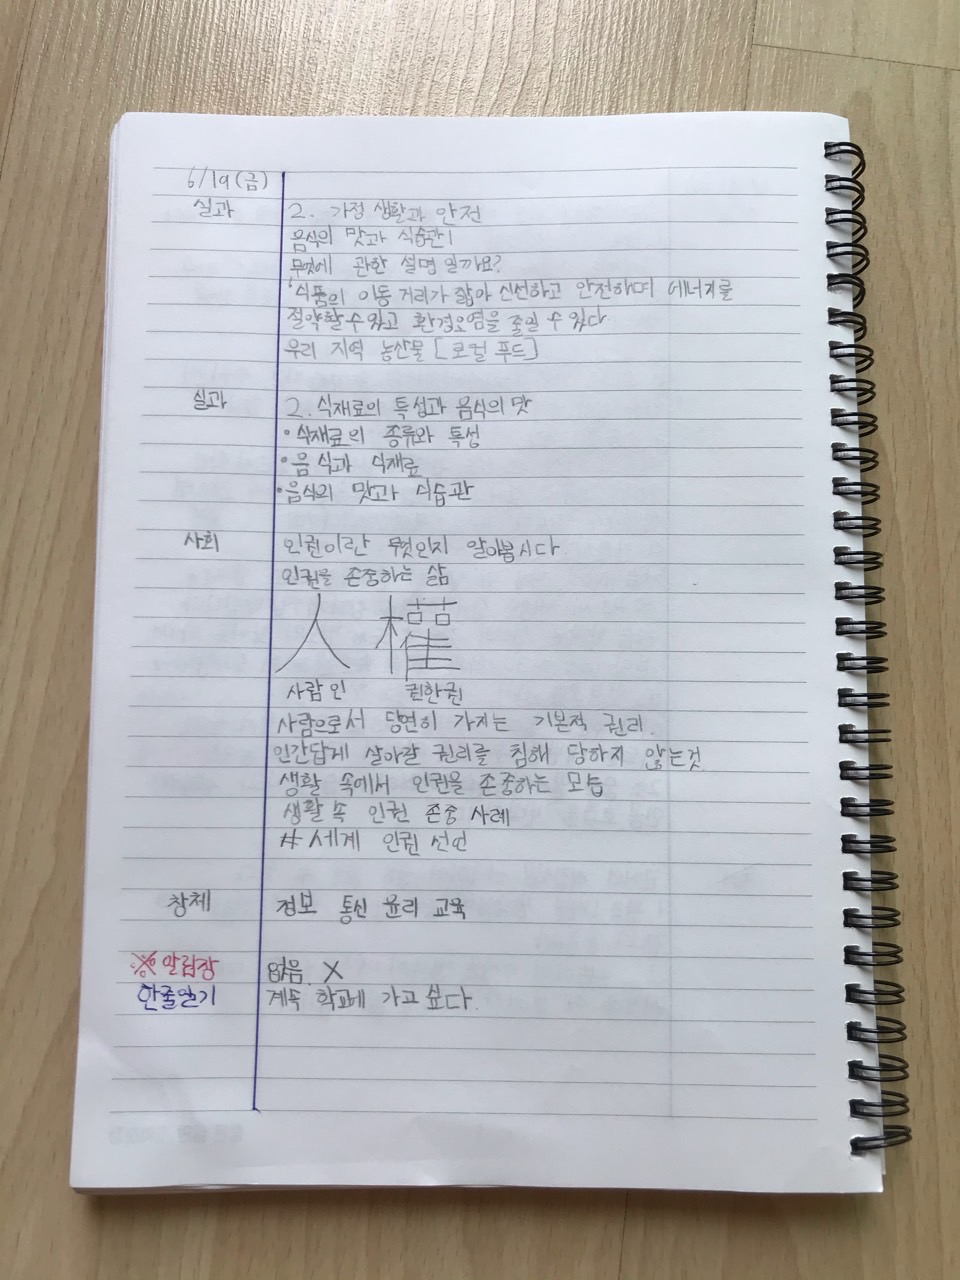 6/19(금)
실과 2. 가정 생활과 안전
음식의 맛과 식습관1
무엇에 관한 설명 일까요?
'식품의 이동 거리가 짧아 신선하고 안전하며 에너지를
절약할 수 있고 환경오염을 줄일 수 있다
우리 지역 농산물 [로컬 푸드]
실과 2. 식재료의 특성과 음식의 맛
•식재료의 종류와 특성
•음식과 식재료
•음식의 맛과 식습관
사회 인권이란 무엇인지 알아봅시다.
인권을 존중하는 삶
人 權
사람 인 권한권
사람으로서 당연히 가지는 기본적 권리.
인간답게 살아갈 권리를 침해 당하지 않는것.
생활 속에서 인권을 존중하는 모습
생활 속 인권 존중 사례
# 세계 인권 선언
창체 정보 통신 윤리 교육
※알림장 없음. X
한줄일기 계속 학교에 가고 싶다.